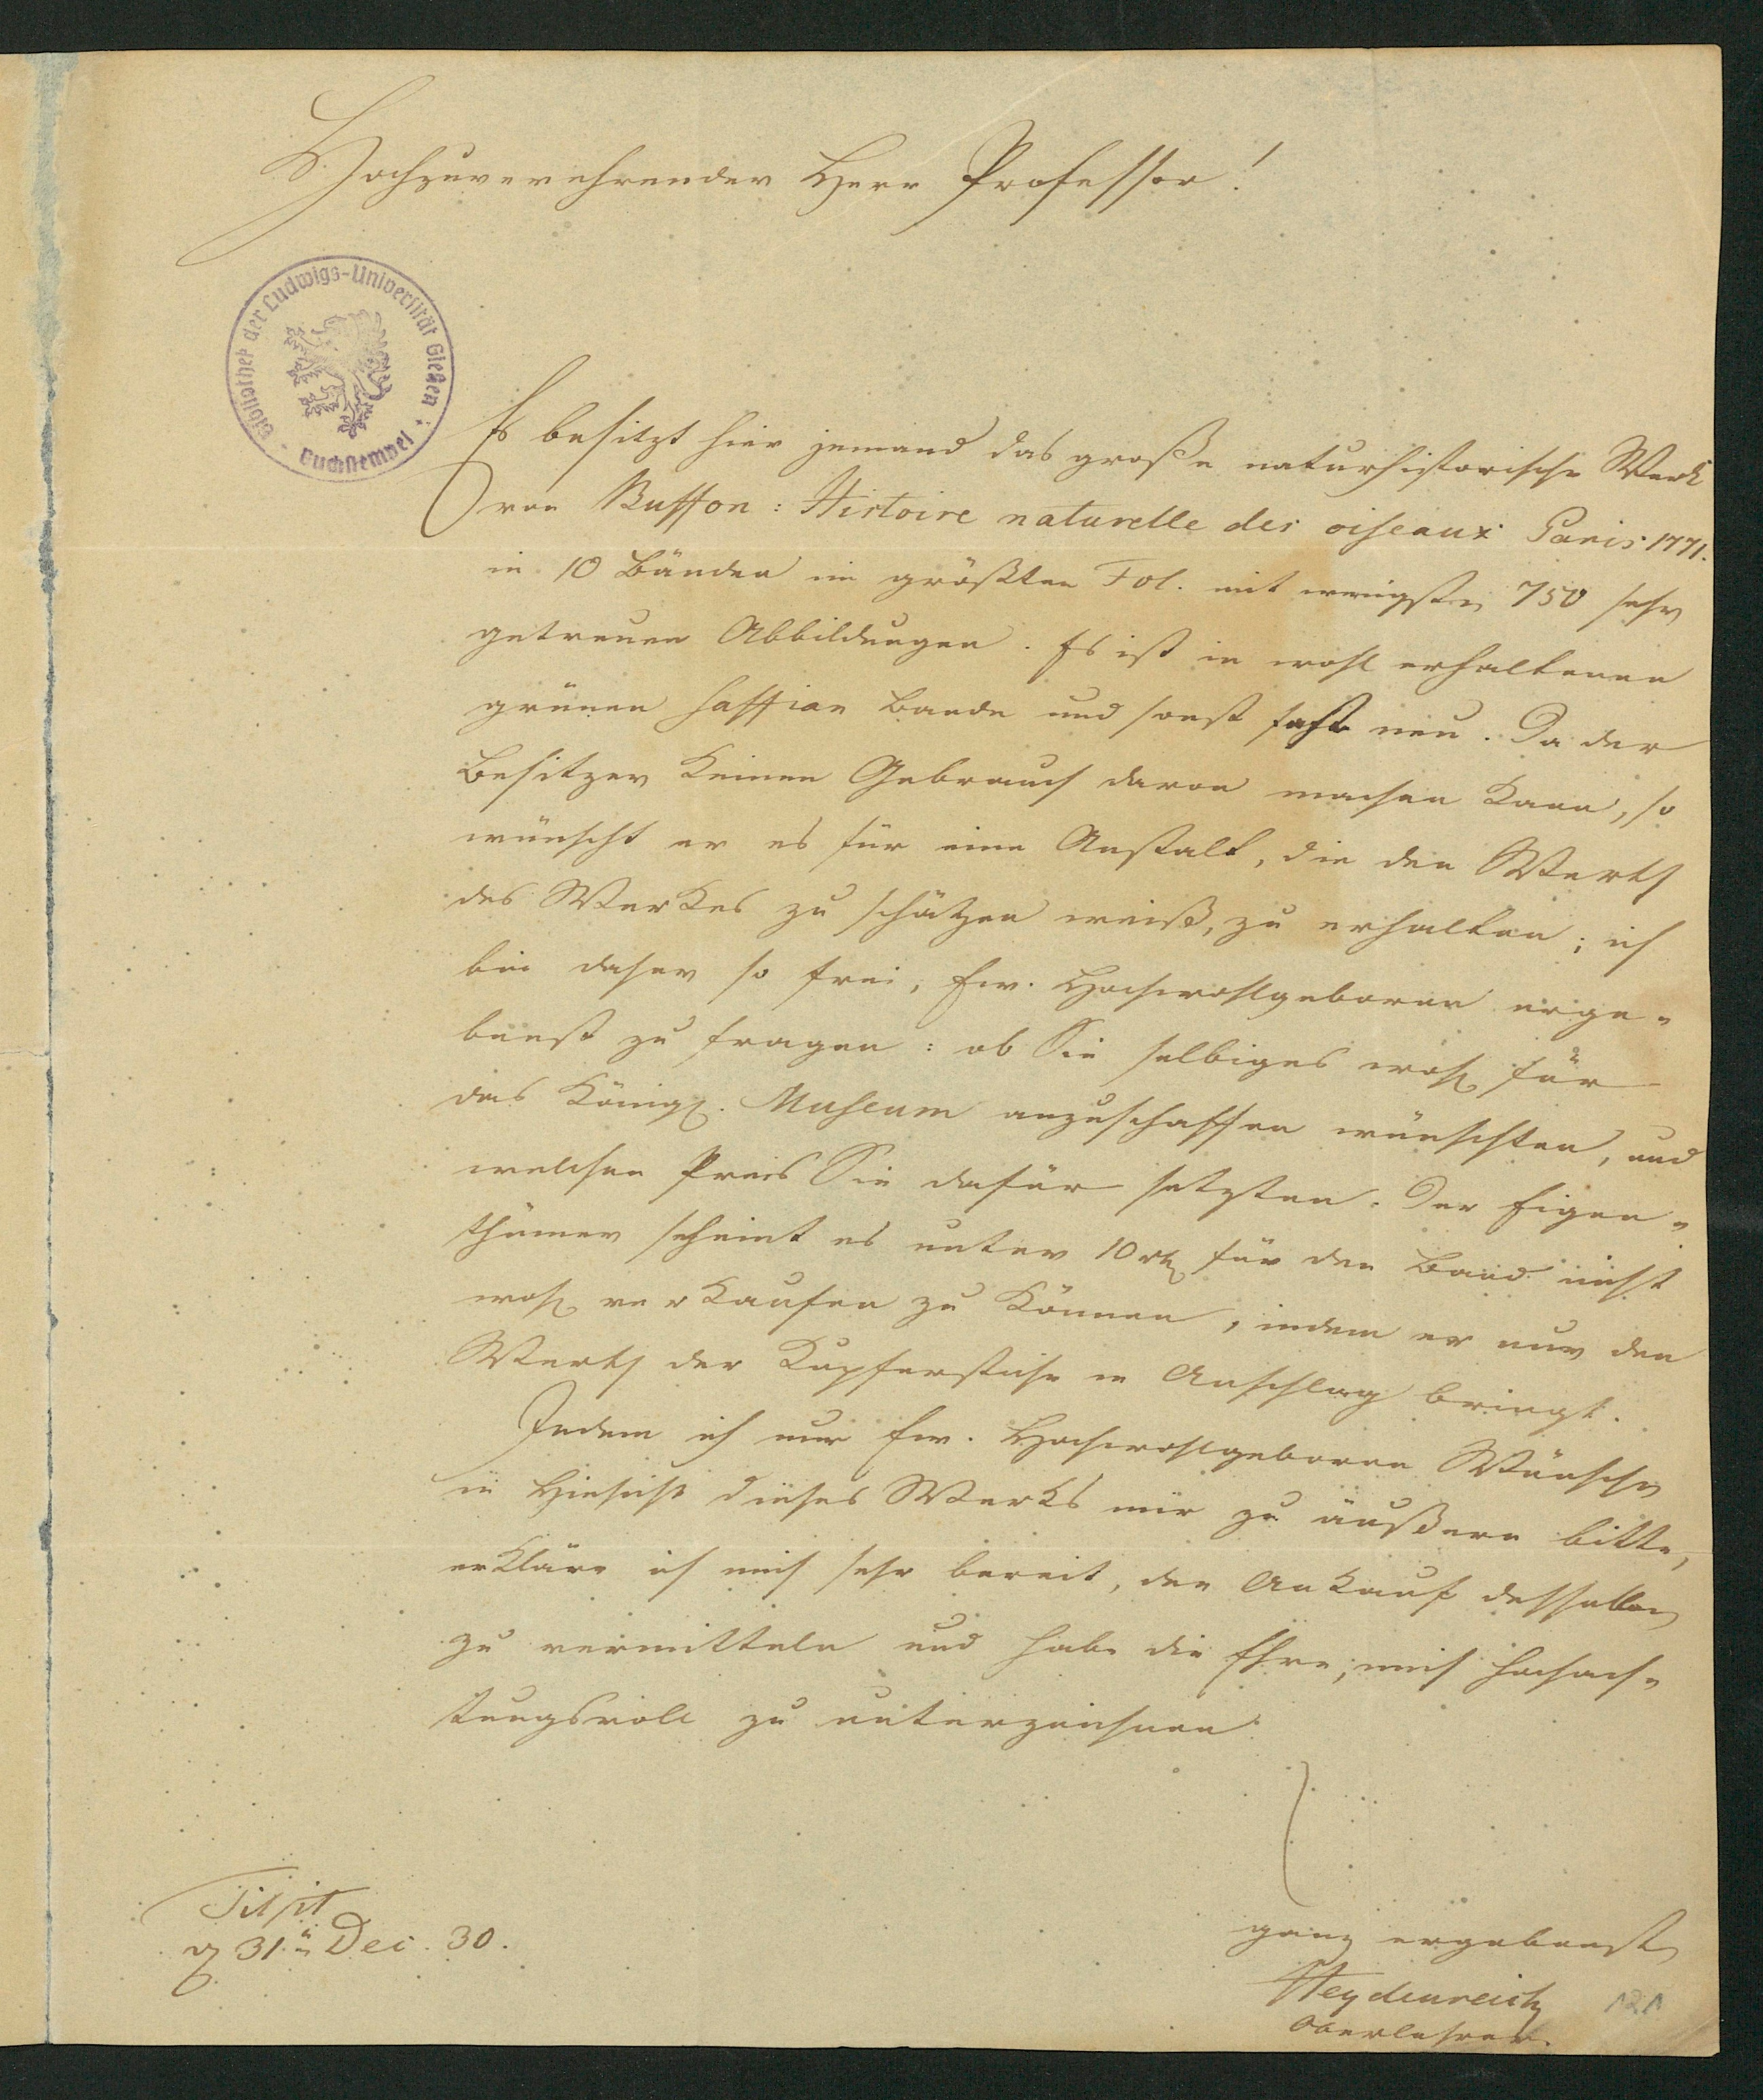 Hochzuverehrender Herr Professor!
Bibliothek der Ludwigs-Universität Gießen
Buchstempel
Es besitzt hier jemand das große naturhistorische Werk
von Buffon: Histoire naturelle des oiseaux Paris 1771.
in 10 Bänden in größten Fol. mit wenigsten 750 sehr
getreuen Abbildungen. Es ist in wohl erhaltenen
grünen Saffian Bande und sonst fast neu. Da der
Besitzer keinen Gebrauch davon machen kann, so
wünscht er es für eine Anstalt, die den Werth
des Werkes zu schätzen weiß, zu erhalten; ich
bin daher so frei, Ew. Hochwohlgeboren erge-
benst zu fragen: ob Sie selbiges wohl für
das Königl. Museum anzuschaffen wünschten, und
welchen Preis Sie dafür setzten. Der Eigen-
thümer scheint es unter 10 rth für den Band nicht
wohl verkaufen zu können, indem er nur den
Werth der Kupferstiche in Anschlag bringt.
Indem ich nur Ew. Hochwohlgeboren Wünsche
in Hinsicht dieses Werks mir zu äußern bitte,
erkläre ich mich sehr bereit, den Ankauf desselben
zu vermitteln und habe die Ehre, mich hochach-
tungsvoll zu unterzeichnen
Tilsit
d 31ten Dec. 30.
ganz ergebenst
Heydenreich
Oberlehrer.
121